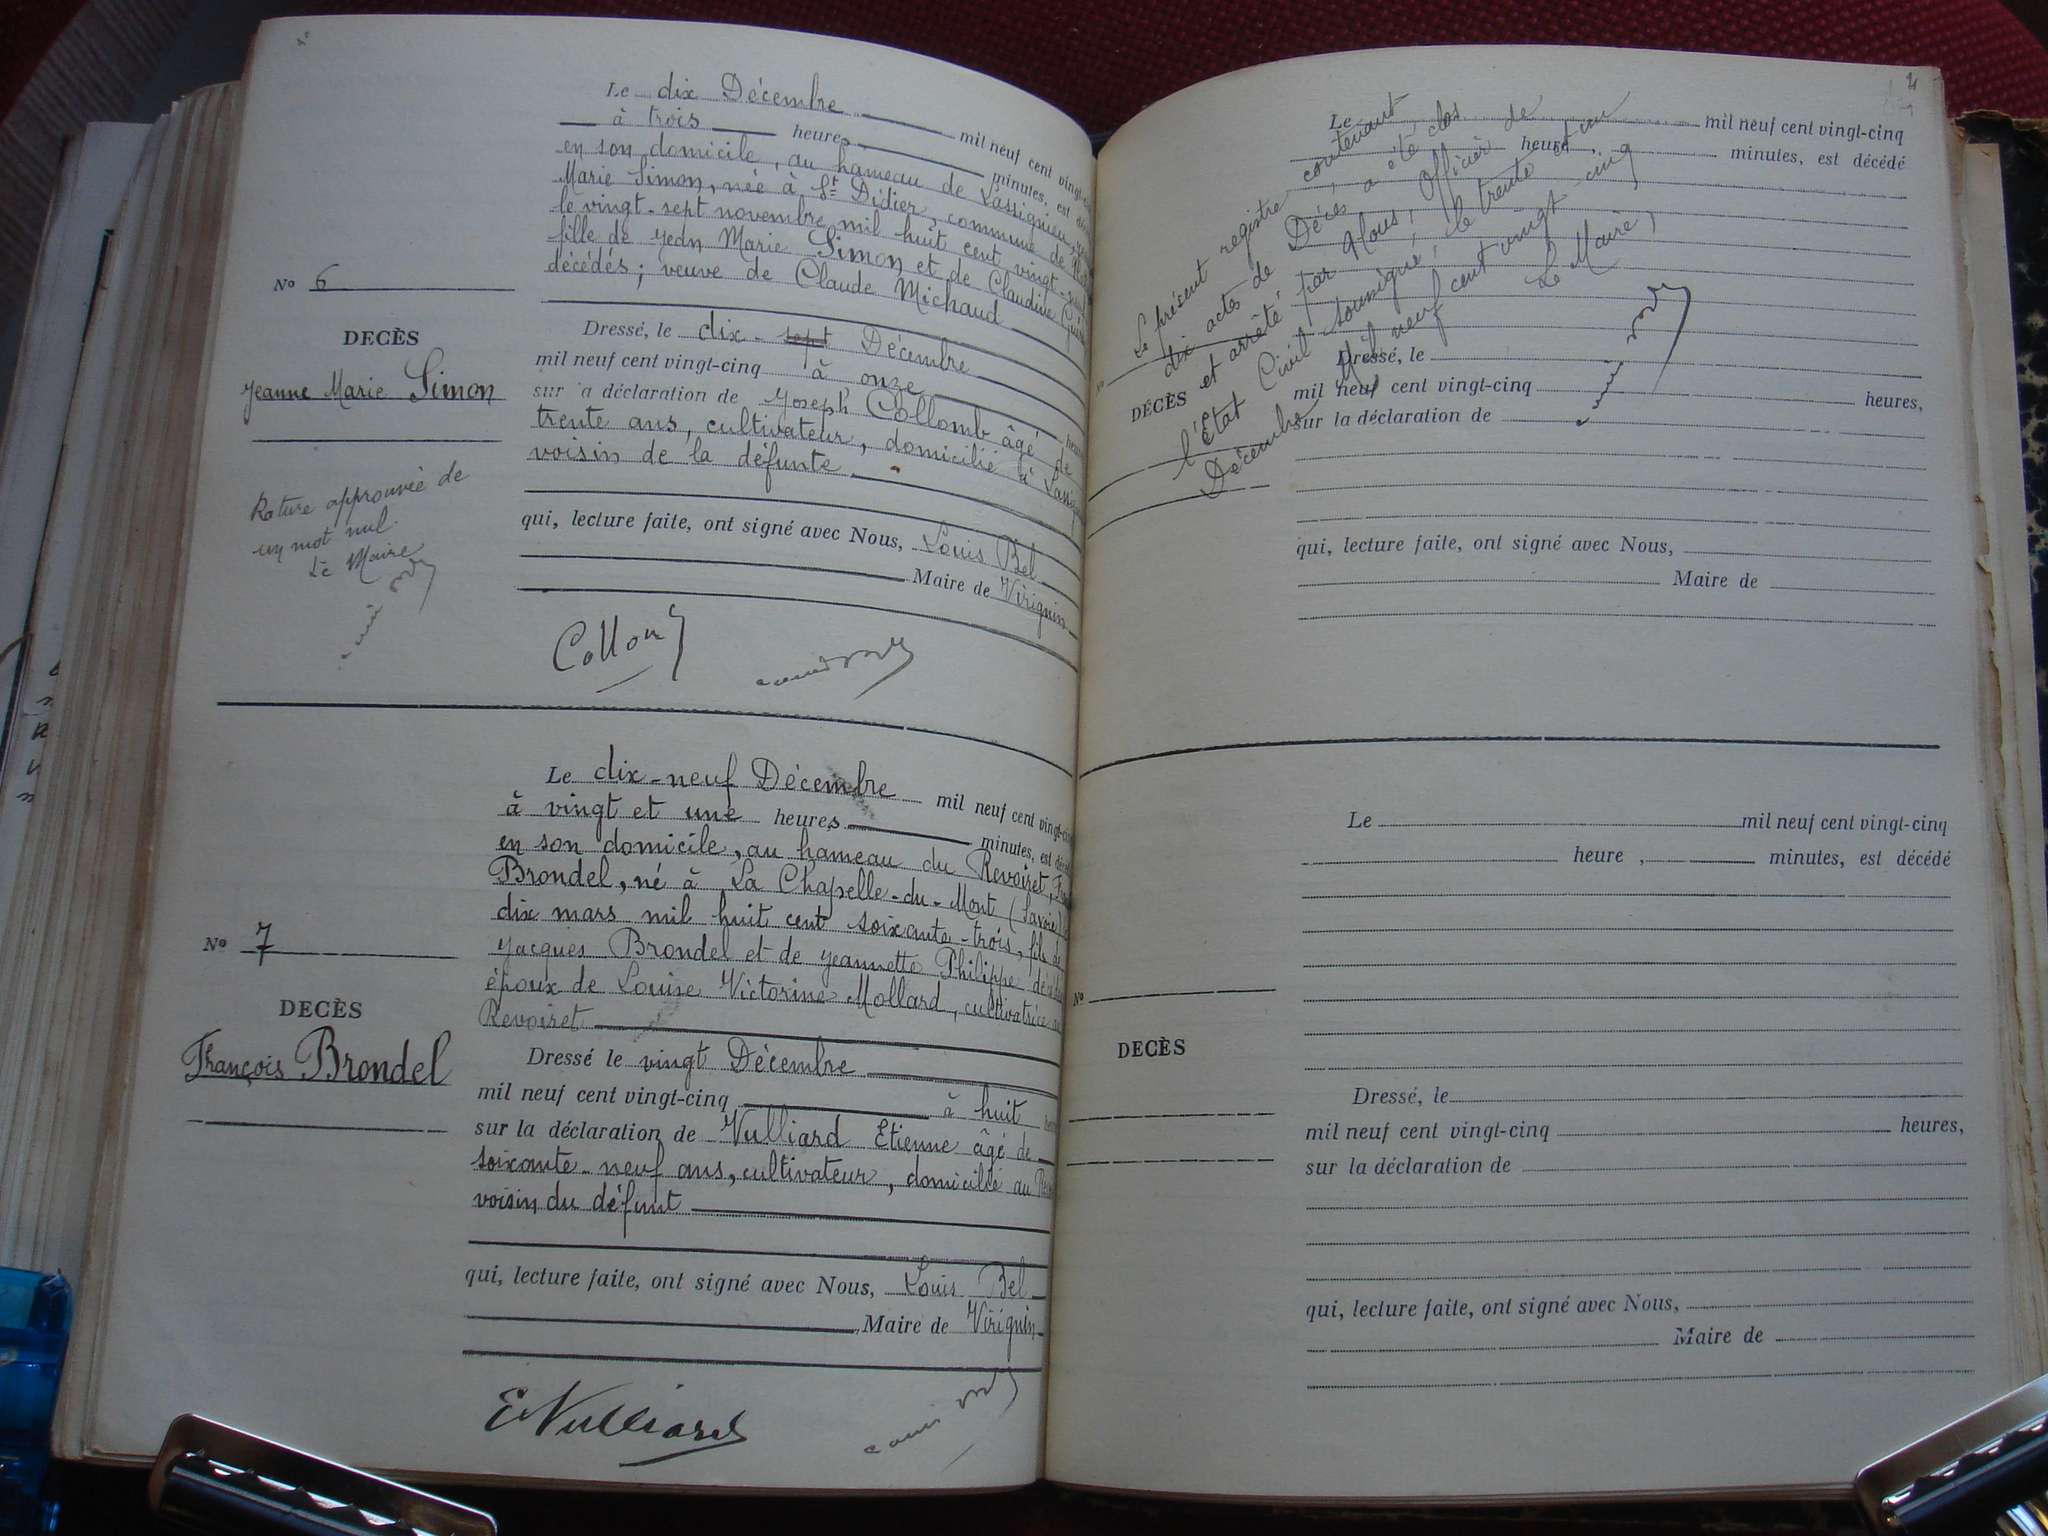 Le dix Décembre mil neuf cent vingt-
à trois heures minutes, est
en son domicile, au hameau de Lassignieu,
Marie Simon, née à St Didier, commune de
le vingt-sept novembre mil huit cent vingt-
fille de Jean Marie Simon et de Claudine
décédés; veuve de Claude Michaud
No 6
DECÈS
Jeanne Marie Simon
Dressé, le dix-sept Décembre
mil neuf cent vingt-cinq à onze
sur a déclaration de Joseph Collomb âgé de
trente ans, cultivateur, domicilié à
voisin de la défunte
Rature approuvée de
un mot nul.
Le Maire
qui, lecture faite, ont signé avec Nous, Louis Bel
Maire de Virignin
Collomb
Le dix-neuf Décembre mil neuf cent vingt-
à vingt et une heures minutes, est
en son domicile, au hameau du Revoiret,
Brondel, né à La Chapelle-du-Mont (Savoie)
dix mars mil huit cent soixante-trois, fils de
Jacques Brondel et de Jeannette Philippe
époux de Louise Victorine Mollard, cultivatrice au
Revoiret
No 7
DECÈS
François Brondel
Dressé le vingt Décembre
mil neuf cent vingt-cinq à huit
sur la déclaration de Vulliard Etienne âgé de
soixante-neuf ans, cultivateur, domicilié au
voisin du défunt
qui, lecture faite, ont signé avec Nous, Louis Bel
Maire de Virignin
E Vulliard
Le mil neuf cent vingt-cinq
heure , minutes, est décédé
Le présent registre contenant
dix actes de Décès, a été clos
et arrêté par Nous, Officier de
l'Etat Civil soussigné, le trente et un
Décembre Mil neuf cent vingt-cinq
Le Maire,
No
DÉCÈS
Dressé, le
mil neuf cent vingt-cinq heures,
sur la déclaration de
qui, lecture faite, ont signé avec Nous,
Maire de
Le mil neuf cent vingt-cinq
heure , minutes, est décédé
No
DECÈS
Dressé, le
mil neuf cent vingt-cinq heures,
sur la déclaration de
qui, lecture faite, ont signé avec Nous,
Maire de